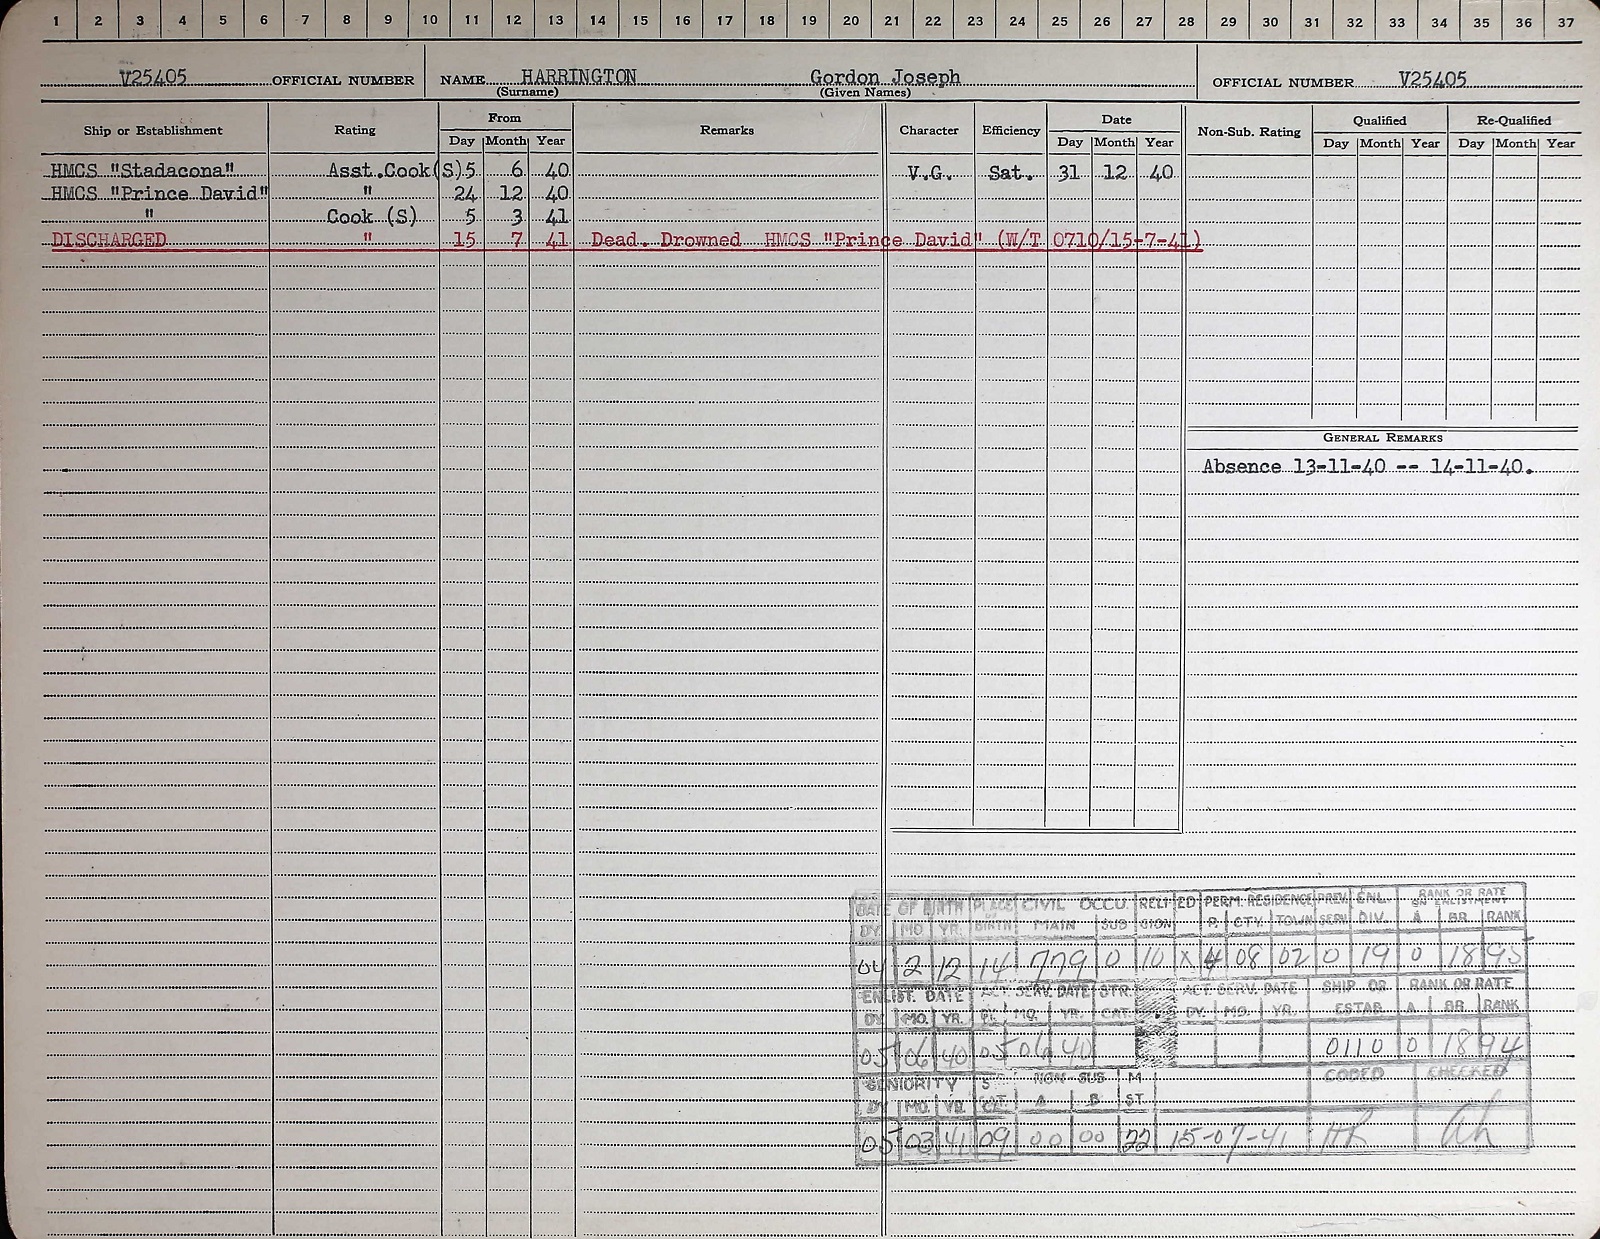 1 2 3 4 5 6 7 8 9 10 11 12 13 14 15 16 17 18 19 20 21 22 23 24 25 26 27 28 29 30 31 32 33 34 35 36 37
V25405 OFFICIAL NUMBER NAME HARRINGTON Gordon Joseph OFFICIAL NUMBER V25405
(Surname) (Given Names)
Ship or Establishment Rating From Remarks Character Efficiency Date Non-Sub. Rating Qualified Re-Qualified
Day Month Year Day Month Year Day Month Year Day Month Year
HMCS "Stadacona" Asst.Cook(S) 5 6 40 V.G. Sat. 31 12 40
HMCS "Prince David" " 24 12 40
" Cook (S) 5 3 41
DISCHARGED " 15 7 41 Dead. Drowned HMCS "Prince David" (W/T 0710/15-7-41)
GENERAL REMARKS
Absence 13-11-40 -- 14-11-40.
DATE OF BIRTH PLACE CIVIL OCCU. RELI ED PERM. RESIDENCE PREV. ENL. RANK OR RATE ON ENLISTMENT
DY. MO YR. BIRTH MAIN SUB GION P. CTY. TOWN SERV. DIV. A BR. RANK
04 2 12 14 779 0 10 X 4 08 02 0 19 0 18 95
ENLIST. DATE ACT. SERV. DATE STR. ACT. SERV. DATE SHIP OR RANK OR RATE
DY MO. YR. MO. YR. CAT. DY. MO. YR. ESTAB. A BR RANK
05 06 40 05 06 40 0110 0 18 94
SENIORITY S NON SUB M CODED CHECKED
DY MO. YR. A B ST.
05 03 41 09 00 00 22 15-07-41